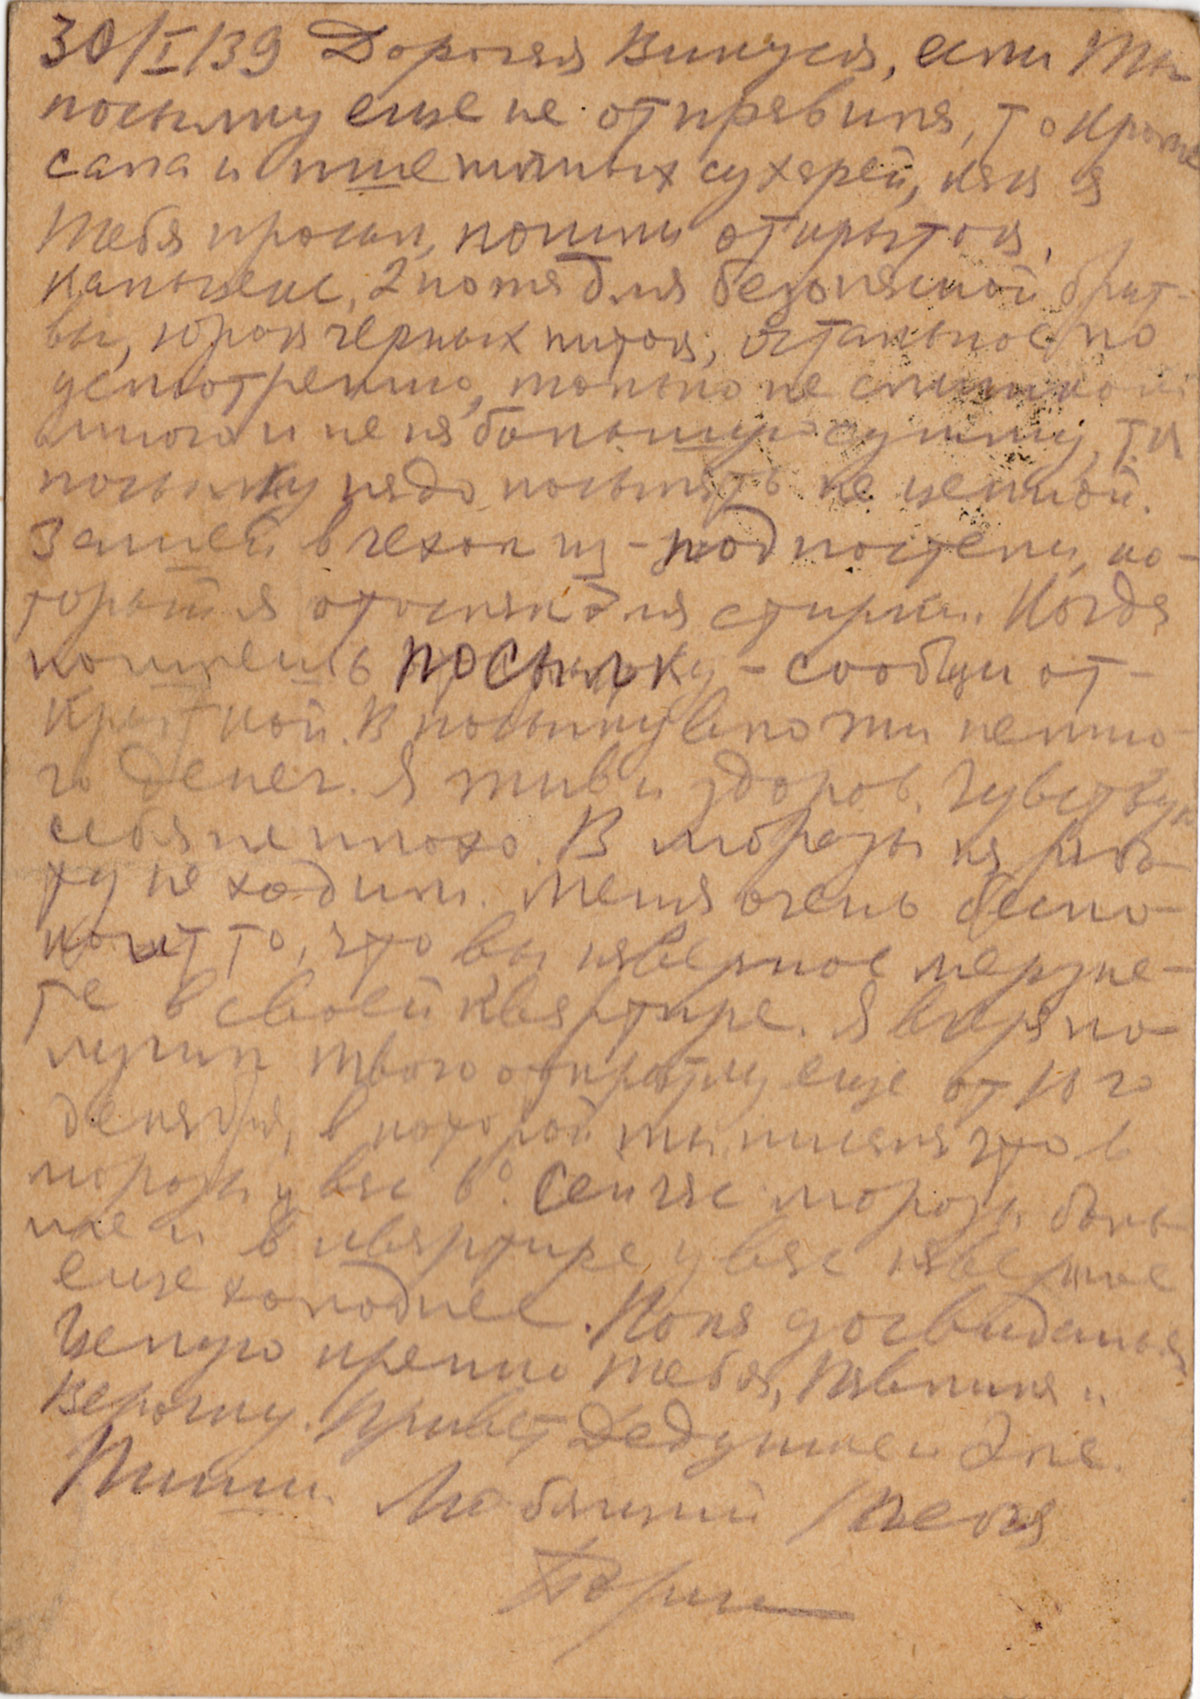 30/I/39 Дорогая Викуся, если Ты
посылку еще не отправила, то кроме
сала и пшеничных сухарей, как я
Тебя просил, пошли открыток,
кальсоны, 2 ножа для безопасной брит-
вы, моток черных ниток, остальное по
усмотрению, только не слишком
много и не на большую сумму, т.к.
посылку надо посылать не ценной.
Зашей в чехол из-под постели, ко-
торый я отослал для стирки. Когда
пошлешь посылку - сообщи от-
крыткой. В посылку вложи немно-
го денег. Я жив и здоров. Чувствую
себя неплохо. В морозы на рабо-
ту не ходим. Меня очень беспо-
коит то, что вы наверное мерзне-
те в своей квартире. Я вчера по-
лучил твою открытку еще от 10го
декабря, в которой ты писала что в
морозы у вас 6°. Сейчас морозы боль-
ше и в квартире у вас наверное
еще холоднее. Пока досвидания
Целую крепко тебя, Павлика и
Верочку. Привет Дедушке и Эле.
Пиши. Любящий Тебя
Борис